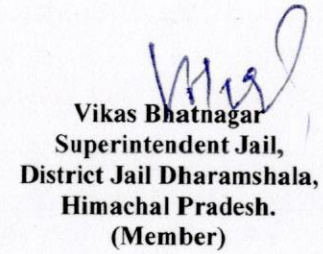 Vikas Bhatnagar
Superintendent Jail,
District Jail Dharamshala,
Himachal Pradesh.
(Member)